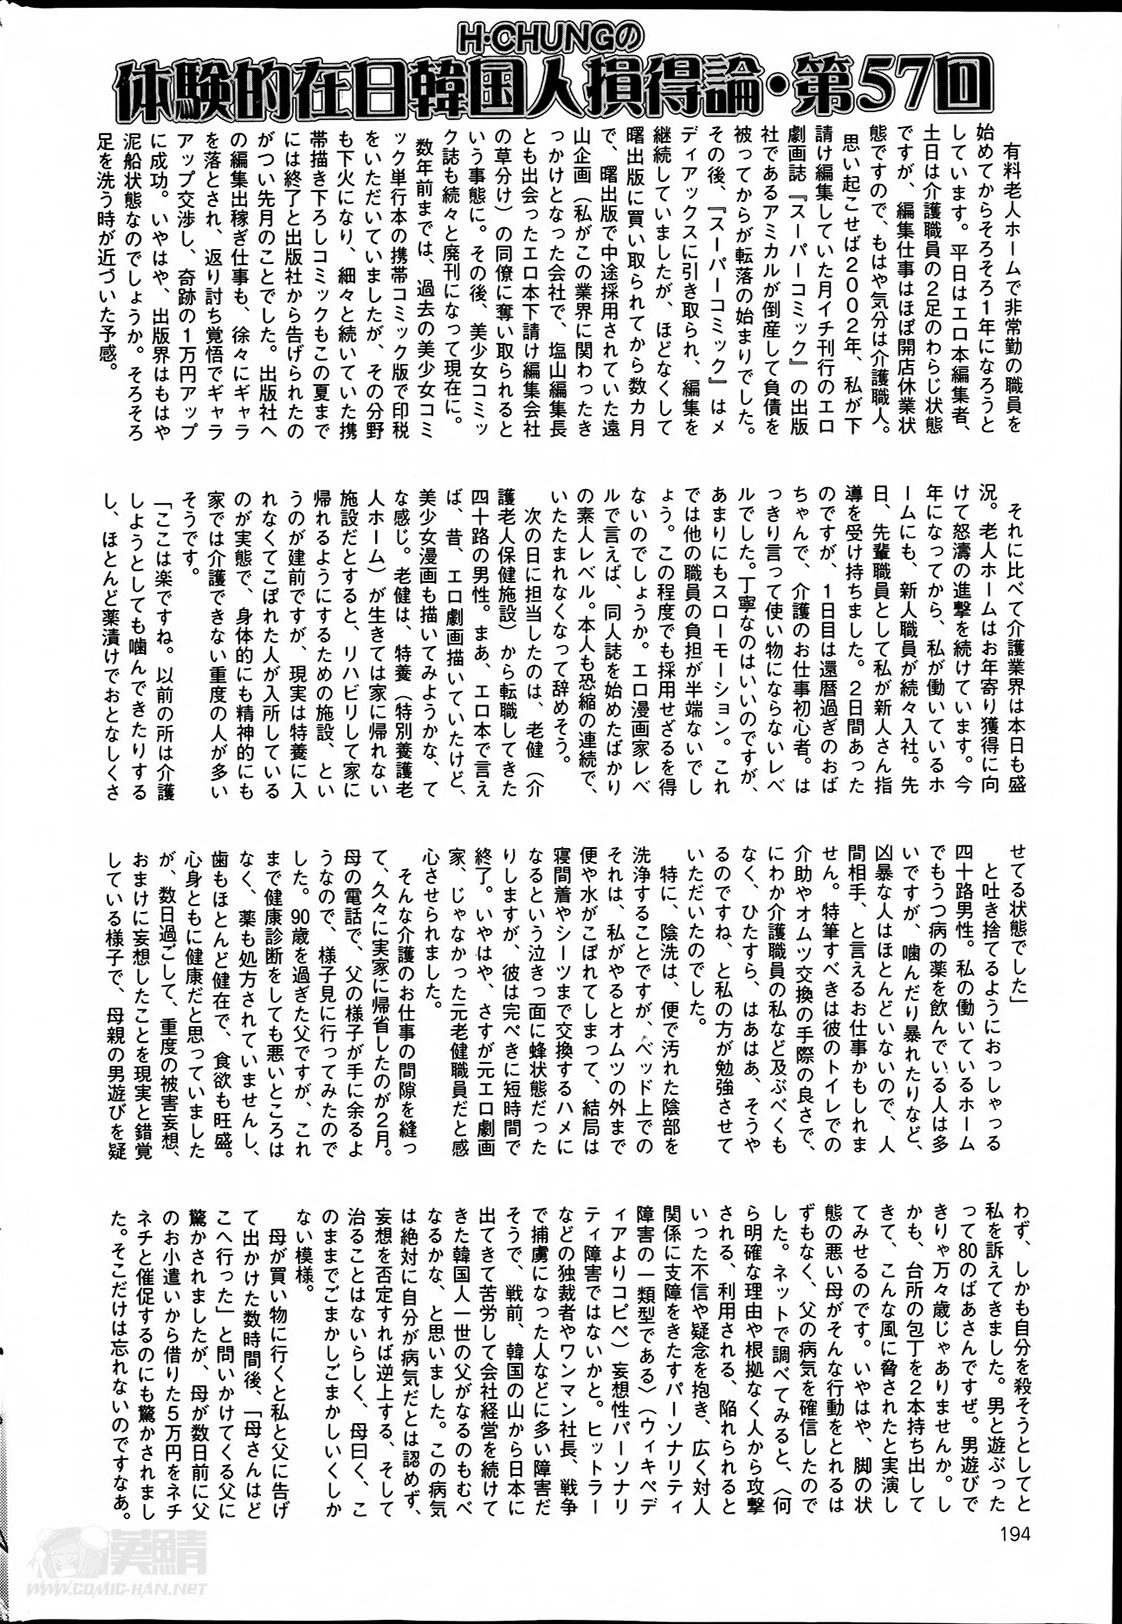 H・CHUNGの
体験的在日韓国人損得論・第57回
有料老人ホームで非常勤の職員を
始めてからそろそろ1年になろうと
しています。平日はエロ本編集者、
土日は介護職員の2足のわらじ状態
ですが、編集仕事はほぼ開店休業状
態ですので、もはや気分は介護職人。
思い起こせば2002年、私が下
請け編集していた月イチ刊行のエロ
劇画誌『スーパーコミック』の出版
社であるアミカルが倒産して負債を
被ってからが転落の始まりでした。
その後、『スーパーコミック』はメ
ディアックスに引き取られ、編集を
継続していましたが、ほどなくして
曙出版に買い取られてから数カ月
で、曙出版で中途採用されていた遠
山企画（私がこの業界に関わったき
っかけとなった会社で、塩山編集長
とも出会ったエロ本下請け編集会社
の草分け）の同僚に奪い取られると
いう事態に。その後、美少女コミッ
ク誌も続々と廃刊になって現在に。
数年前までは、過去の美少女コミ
ック単行本の携帯コミック版で印税
をいただいていましたが、その分野
も下火になり、細々と続いていた携
帯描き下ろしコミックもこの夏まで
には終了と出版社から告げられたの
がつい先月のことでした。出版社へ
の編集出稼ぎ仕事も、徐々にギャラ
を落とされ、返り討ち覚悟でギャラ
アップ交渉し、奇跡の1万円アップ
に成功。いやはや、出版界はもはや
泥船状態なのでしょうか。そろそろ
足を洗う時が近づいた予感。
それに比べて介護業界は本日も盛
況。老人ホームはお年寄り獲得に向
けて怒濤の進撃を続けています。今
年になってから、私が働いているホ
ームにも、新人職員が続々入社。先
日、先輩職員として私が新人さん指
導を受け持ちました。2日間あった
のですが、1日目は還暦過ぎのおば
ちゃんで、介護のお仕事初心者。は
っきり言って使い物にならないレベ
ルでした。丁寧なのはいいのですが、
あまりにもスローモーション。これ
では他の職員の負担が半端ないでし
ょう。この程度でも採用せざるを得
ないのでしょうか。エロ漫画家レベ
ルで言えば、同人誌を始めたばかり
の素人レベル。本人も恐縮の連続で、
いたたまれなくなって辞めそう。
次の日に担当したのは、老健（介
護老人保健施設）から転職してきた
四十路の男性。まあ、エロ本で言え
ば、昔、エロ劇画描いていたけど、
美少女漫画も描いてみようかな、て
な感じ。老健は、特養（特別養護老
人ホーム）が生きては家に帰れない
施設だとすると、リハビリして家に
帰れるようにするための施設、とい
うのが建前ですが、現実は特養に入
れなくてこぼれた人が入所している
のが実態で、身体的にも精神的にも
家では介護できない重度の人が多い
そうです。
「ここは楽ですね。以前の所は介護
しようとしても噛んできたりする
し、ほとんど薬漬けでおとなしくさ
せてる状態でした」
と吐き捨てるようにおっしゃる
四十路男性。私の働いているホーム
でもうつ病の薬を飲んでいる人は多
いですが、噛んだり暴れたりなど、
凶暴な人はほとんどいないので、人
間相手、と言えるお仕事かもしれま
せん。特筆すべきは彼のトイレでの
介助やオムツ交換の手際の良さで、
にわか介護職員の私など及ぶべくも
なく、ひたすら、はあはあ、そうや
るのですね、と私の方が勉強させて
いただいたのでした。
特に、陰洗は、便で汚れた陰部を
洗浄することですが、ベッド上での
それは、私がやるとオムツの外まで
便や水がこぼれてしまって、結局は
寝間着やシーツまで交換するハメに
なるという泣きっ面に蜂状態だった
りしますが、彼は完ぺきに短時間で
終了。いやはや、さすが元エロ劇画
家、じゃなかった元老健職員だと感
心させられました。
そんな介護のお仕事の間隙を縫っ
て、久々に実家に帰省したのが2月。
母の電話で、父の様子が手に余るよ
うなので、様子見に行ってみたので
した。90歳を過ぎた父ですが、これ
まで健康診断をしても悪いところは
なく、薬も処方されていませんし、
歯もほとんど健在で、食欲も旺盛。
心身ともに健康だと思っていました
が、数日過ごして、重度の被害妄想、
おまけに妄想したことを現実と錯覚
している様子で、母親の男遊びを疑
わず、しかも自分を殺そうとしてと
私を訴えてきました。男と遊ぶった
って80のばあさんですぜ。男遊びで
きりゃ万々歳じゃありませんか。し
かも、台所の包丁を2本持ち出して
きて、こんな風に脅されたと実演し
てみせるのです。いやはや、脚の状
態の悪い母がそんな行動をとれるは
ずもなく、父の病気を確信したので
した。ネットで調べてみると、〈何
ら明確な理由や根拠なく人から攻撃
される、利用される、陥れられると
いった不信や疑念を抱き、広く対人
関係に支障をきたすパーソナリティ
障害の一類型である〉（ウィキペデ
ィアよりコピペ）妄想性パーソナリ
ティ障害ではないかと。ヒットラー
などの独裁者やワンマン社長、戦争
で捕虜になった人などに多い障害だ
そうで、戦前、韓国の山から日本に
出てきて苦労して会社経営を続けて
きた韓国人一世の父がなるのもむべ
なるかな、と思いました。この病気
は絶対に自分が病気だとは認めず、
妄想を否定すれば逆上する、そして
治ることはないらしく、母曰く、こ
のままでごまかしごまかしいくしか
ない模様。
母が買い物に行くと私と父に告げ
て出かけた数時間後、「母さんはど
こへ行った」と問いかけてくる父に
驚かされましたが、母が数日前に父
のお小遣いから借りた5万円をネチ
ネチと催促するのにも驚かされまし
た。そこだけは忘れないのですなあ。
194
英鯖
WWW.COMIC-HAN.NET